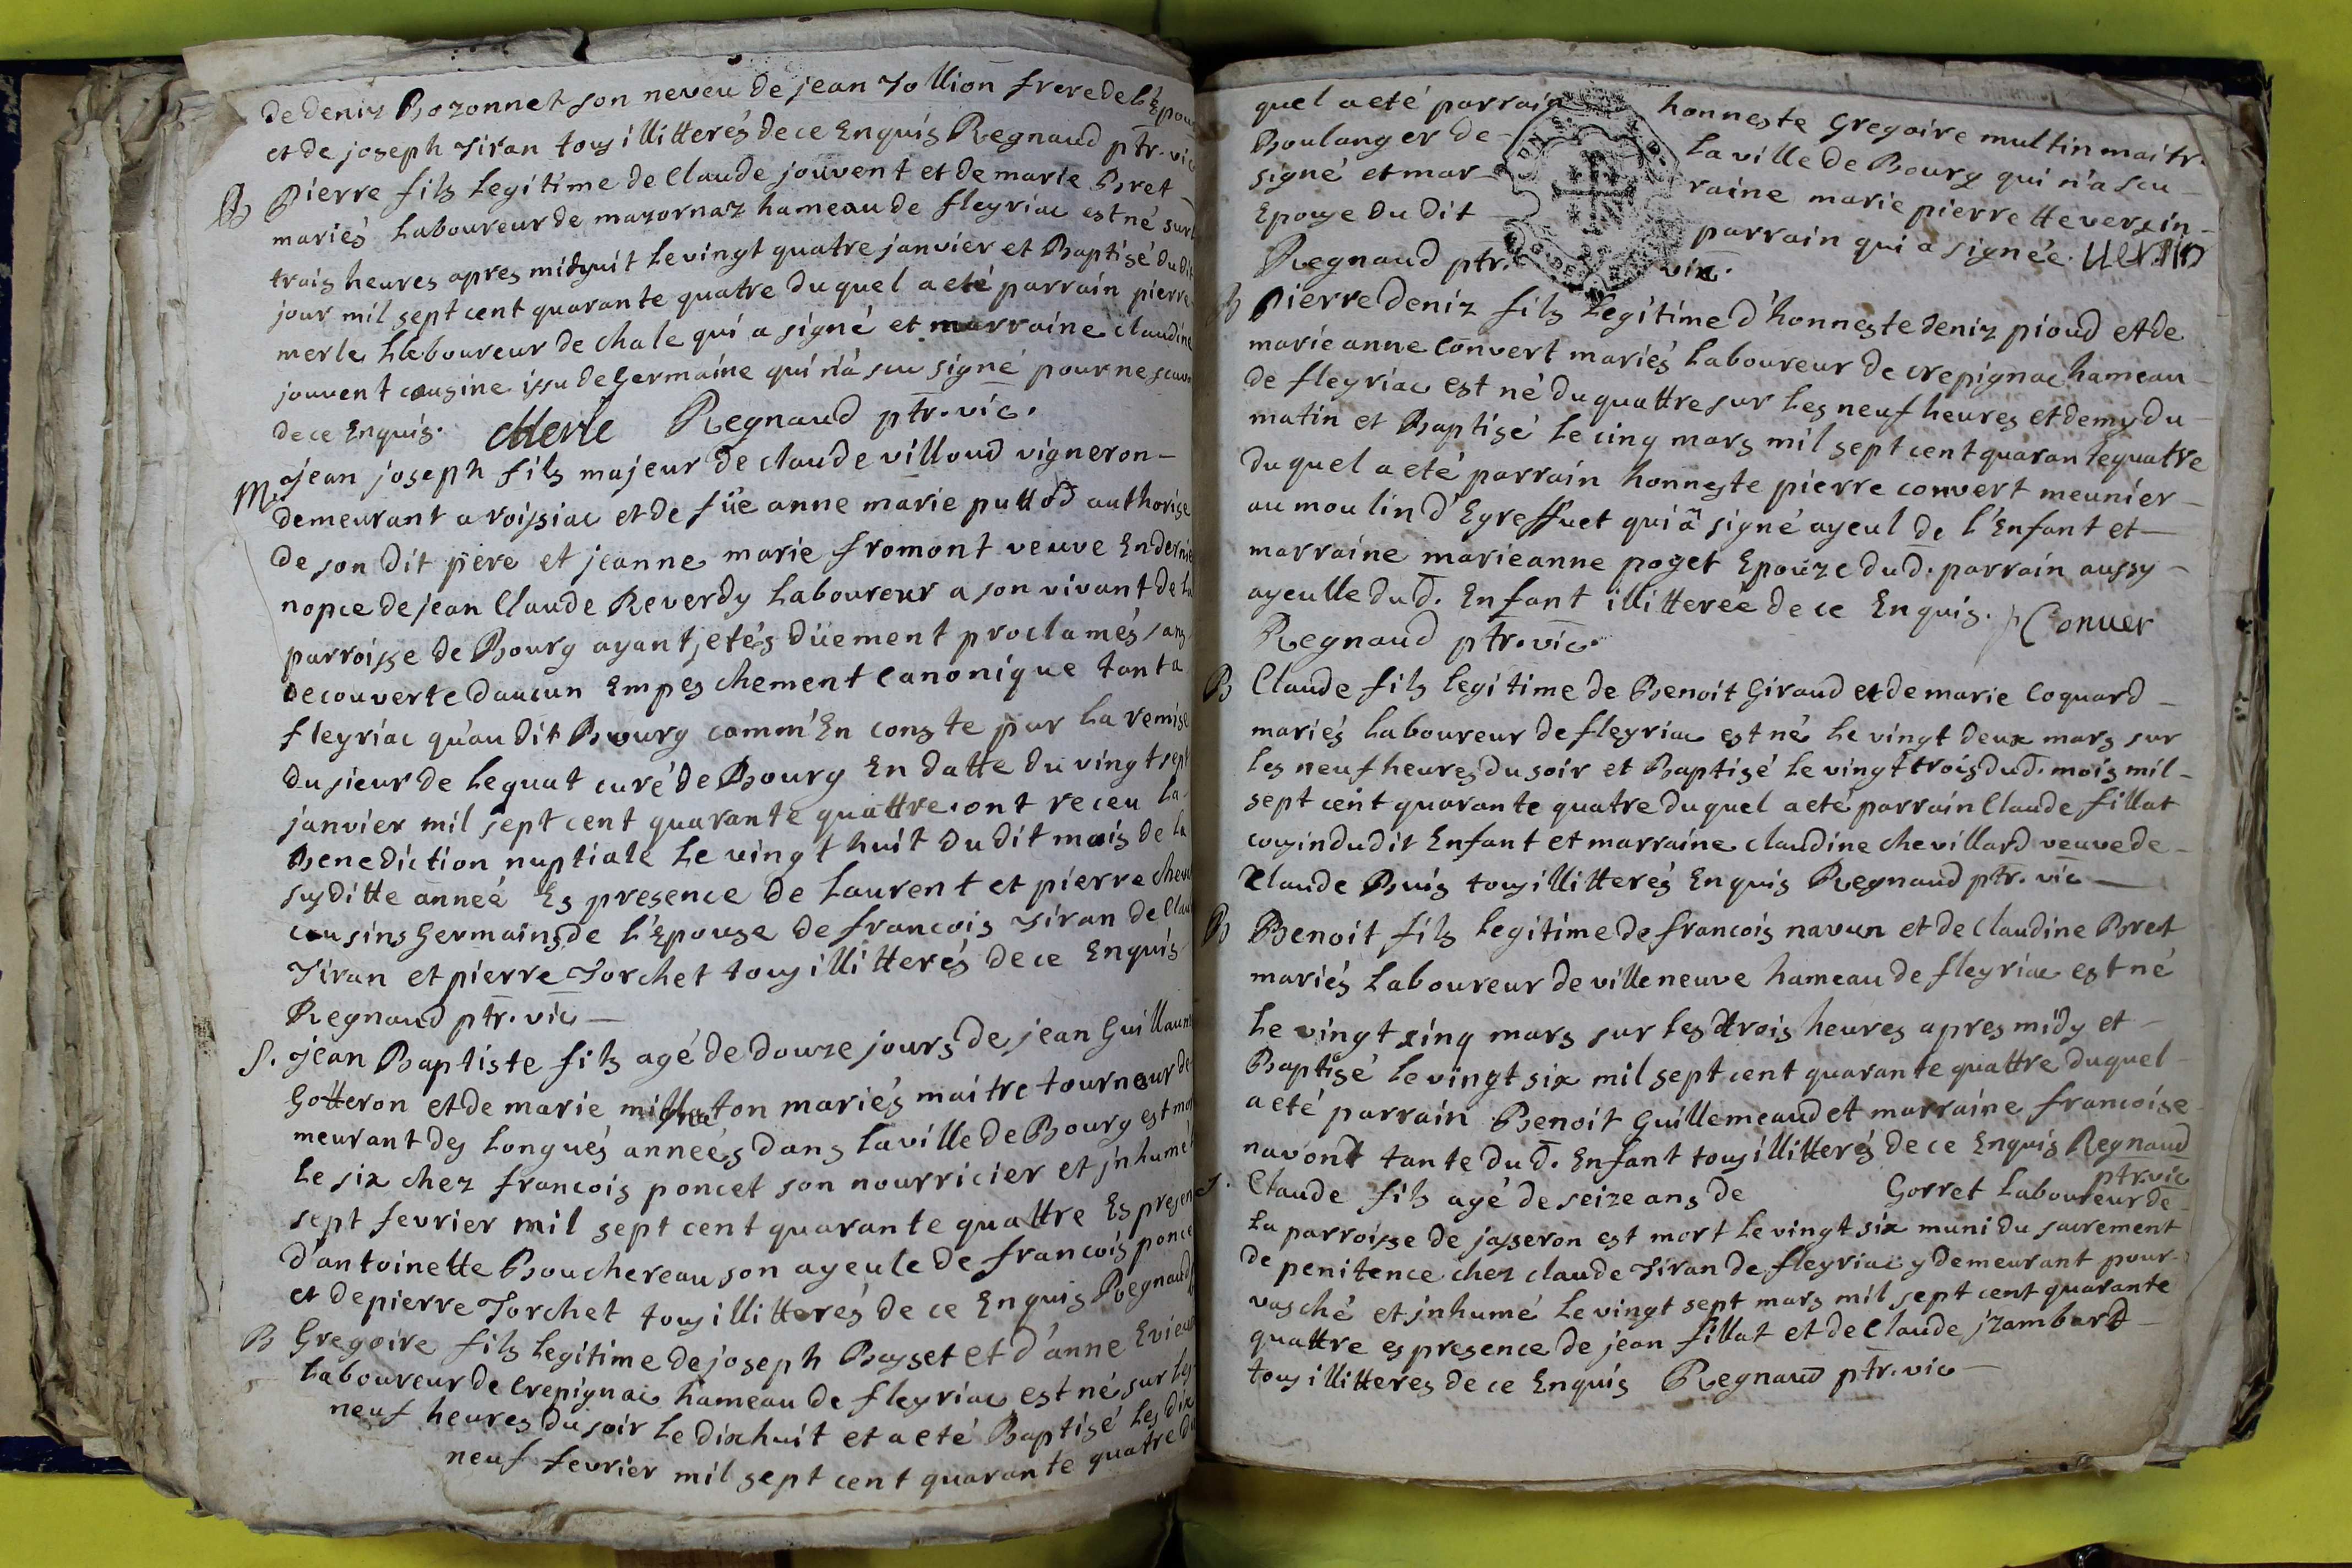 de deniz Bozonnet son neveu de jean Jollion frere de l'Epou
et de joseph Tiran tous illitterés de ce Enquis Regnaud ptr. vic
B Pierre fils legitime de Claude jouvent et de marie Bret
mariés Laboureur de mazornaz hameau de fleyriac est né sur
trois heures apres le vingt quatre janvier et Baptisé du dit
jour mil sept cent quarante quatre duquel a eté parrain pierre
merle Laboureur de chale qui a signé et marraine claudine
jouvent cousine issu de Germaine qui n'a sçu signé pour ne scav
de ce Enquis. Merle Regnaud ptr. vic.
M. jean joseph fils majeur de claude villoud vigneron
demeurant a roissiac et de füe anne marie puttod authorise
de son dit pere et jeanne marie fromont veuve En dernie
nopce de jean Claude Reverdy Laboureur a son vivant de La
parroisse de Bourg ayant etés düement proclamés sans
decouverte daucun Empeschement Canonique tant a
fleyriac qu'au dit Bourg comm'En conste par La remise
du sieur de Lequat curé de Bourg En datte du vingt sept
janvier mil sept cent quarante quattre. ont receu La
Benediction nuptiale Le vingt huit du dit mois de La
susditte anneé Es presence de Laurent et pierre chev
cousins Germains de l'Epouse de francois Tiran de Clau
Tiran et pierre Torchet tous illitterés de ce Enquis
Regnaud ptr. vic
S. jean Baptiste fils agé de douze jours de jean Guillaume
Gotteron et de marie mariés maitre tourneur de
meurant des Longués anneés dans La ville de Bourg est mor
Le six chez francois poncet son nourricier et jnhumé
sept fevrier mil sept cent quarante quattre Es presen
d'antoinette Bouchereau son ayeule de francois ponce
et de pierre Torchet tous illitterés de ce Enquis Regnaud
B Gregoire fils Legitime de joseph Basset et d'anne Evieu
Laboureur de Crepignac hameau de fleyriac est né sur Les
neuf heures du soir Le dixhuit et a eté Baptisé Les dix
neuf fevrier mil sept cent quarante quatre du
quel a eté parrain honneste Gregoire multin maitr.
Boulanger de La ville de Bourg qui n'a sçu
signé et marraine marie pierrette versin
Epouse du dit parrain qui a signée. Uersin
Regnaud ptr. vic.
B pierre deniz fils Legitime d'honneste deniz pioud et de
marie anne Convert mariés Laboureur de crepignac hameau
de fleyriac est né du quattre sur Les neuf heures et demy du
matin et Baptisé Le cinq mars mil sept cent quarante quatre
duquel a eté parrain honneste pierre convert meunier
au moulin d'Egreffuet qui a signé ayeul de l'Enfant et
marraine marieanne poget Epouze dud. parrain aussy
ayeulle dud. Enfant illitereé de ce Enquis. p Conuer
Regnaud ptr. vic.
B Claude fils legitime de Benoit Giraud et de marie Coquard
mariés Laboureur de fleyriac est né Le vingt deux mars sur
Les neuf heures du soir et Baptisé Le vingt trois dud. mois mil
sept cent quarante quatre duquel a eté parrain Claude fillat
cousin du dit Enfant et marraine claudine chevillard veuve de
Claude Buis tous illitterés Enquis Regnaud ptr. vic
B Benoit fils legitime de francois navun et de Claudine Bret
mariés Laboureur de ville neuve hameau de fleyriac est né
Le vingt cinq mars sur Les trois heures apres midy et
Baptisé Le vingt six mil sept cent quarante quattre duquel
a eté parrain Benoit Guillemeaud et marraine francoise
navond tante dud. Enfant tous illitterés de ce Enquis Regnaud
ptr. vic
S. Claude fils agé de seize ans de Gorret Laboureur de
La parroisse de jasseron est mort Le vingt six muni du sacrement
de penitence chez claude Tiran de fleyriac y demeurant pour
vasché et jnhumé Le vingt sept mars mil sept cent quarante
quattre es presence de jean fillat et de Claude jzambard
tous illitteres de ce Enquis Regnaud ptr. vic